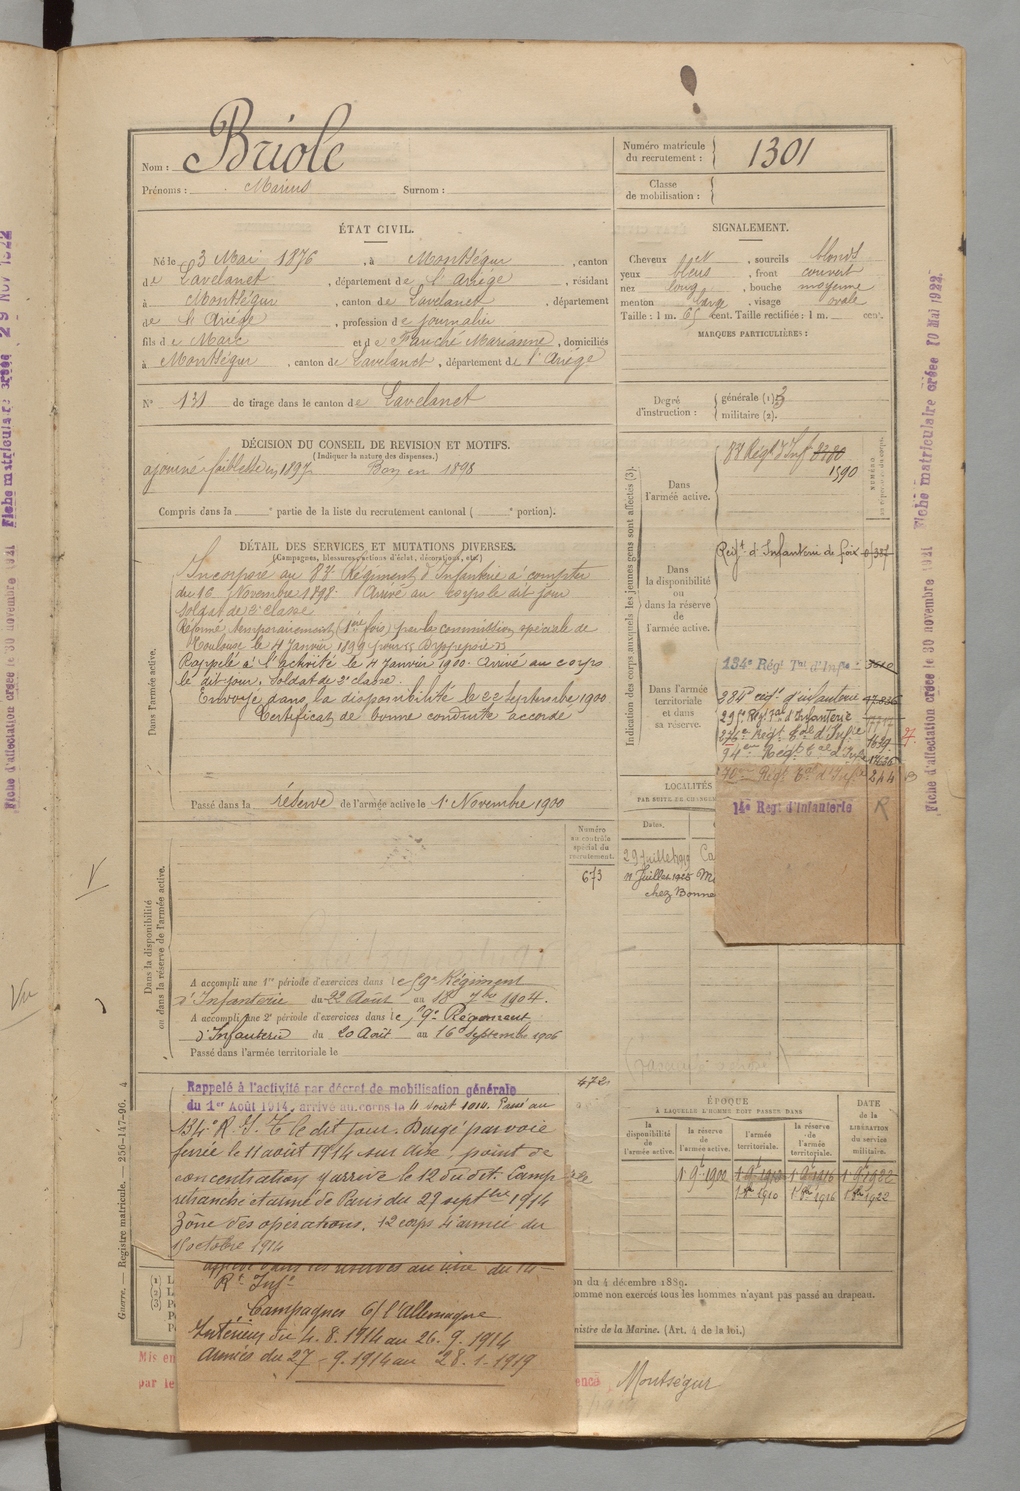 Briole
Nom :
Prénoms : Marius Surnom :
Numéro matricule
du recrutement : 1301
Classe
de mobilisation :
ÉTAT CIVIL.
Né le 3 Mai 1876, à Montségur, canton
de Lavelanet, département de l'Ariège, résidant
à Montségur, canton de Lavelanet, département
de l'Ariège, profession de journalier
fils de Marc et de Fauché Marianne, domiciliés
à Montségur, canton de Lavelanet, département de l'Ariège
N° 131 de tirage dans le canton de Lavelanet
SIGNALEMENT.
Cheveux et, sourcils blonds
yeux bleus, front couvert
nez long, bouche moyenne
menton large, visage ovale
Taille : 1 m. 65 cent. Taille rectifiée : 1 m. cent.
MARQUES PARTICULIÈRES :
Degré
d'instruction :
générale (1). 3
militaire (2).
DÉCISION DU CONSEIL DE REVISION ET MOTIFS.
(Indiquer la nature des dispenses.)
ajourné faiblesse en 1897 Bon en 1898
Compris dans la ° partie de la liste du recrutement cantonal ( ° portion).
DÉTAIL DES SERVICES ET MUTATIONS DIVERSES.
(Campagnes, blessures, actions d'éclat, décorations, etc.)
Dans l'armée active.
Incorporé au 83e Régiment d'Infanterie à compter
du 16 Novembre 1898. Arrivé au corps le dit jour
Soldat de 2e classe
Réformé temporairement (1ère fois) par la commission spéciale de
Toulouse le 4 Janvier 1899 pour
Rappelé à l'activité le 4 Janvier 1900. Arrivé au corps
le dit jour. Soldat de 2e classe.
Envoyé dans la disponibilité le 22 septembre 1900
Certificat de bonne conduite accordé
Passé dans la réserve de l'armée active le 1er Novembre 1900
Indication des corps auxquels les jeunes gens sont affectés (3).
Dans
l'armée active.
83e Régt d'Inf
1590
NUMÉRO
Dans
la disponibilité
ou
dans la réserve
de
l'armée active.
Régt d'Infanterie de foix
Dans l'armée
territoriale
et dans
sa réserve.
134e Régt Tal d'Infie
284e régt d'infanterie
295e Régt Tal d'Infanterie
276e Régt Tal d'Infie 1639
94e Régt Tal d'Infie
Régt Tal d'Infie 244
14e Regt d'Infanterie R
LOCALITÉS
Dates.
29 Juillet
Juillet
chez Bonne
Numéro
au contrôle
spécial du
recrutement.
673
Dans la disponibilité
ou dans la réserve de l'armée active.
A accompli une 1re période d'exercices dans le 59e Régiment
d'Infanterie du 22 Août au 18 7bre 1904.
A accompli une 2e période d'exercices dans le 59e Régiment
d'Infanterie du 20 Août au 16 septembre 1906
Passé dans l'armée territoriale le
472
Rappelé à l'activité par décret de mobilisation générale
du 1er Août 1914, arrivé au corps le 4 août 1914. Passé au
134e R. I. T. le dit jour. Dirigé par voie
ferrée le 11 août 1914 sur point de
concentration y arrive le 12 du dit. Camp
retranché et armé de Paris du 27 septbre 1914
Zône des opérations. 12 corps 4 armée du
15 octobre 1914
affecté dans les réserves au titre du 14e
Rt Infie
Campagnes C/ l'Allemagne
Intérieur du 4.8.1914 au 26.9.1914
Armées du 27-9.1914 au 28.1.1919
ÉPOQUE
À LAQUELLE L'HOMME DOIT PASSER DANS
DATE
de la
LIBÉRATION
du service
militaire.
la
disponibilité
de
l'armée active.
la réserve
de
l'armée active.
l'armée
territoriale.
la réserve
de
l'armée
territoriale.
1 9bre 1900 1 9bre 1910 1 9bre 1916 1 9bre 1922
1 8bre 1910 1 8bre 1916 1 8bre 1922
on du 4 décembre 1889.
omme non exercés tous les hommes n'ayant pas passé au drapeau.
inistre de la Marine. (Art. 4 de la loi.)
Mis en
par le
ence, Montségur
Guerre. — Registre matricule. — 256-147-96. 4
Fiche matriculaire créée 10 Mai 1922.
Fiche d'affectation créée le 30 novembre 1931
Fiche matriculaire créée 29 NOV 1922
Fiche d'affectation créée le 30 novembre 1931
V
Vu